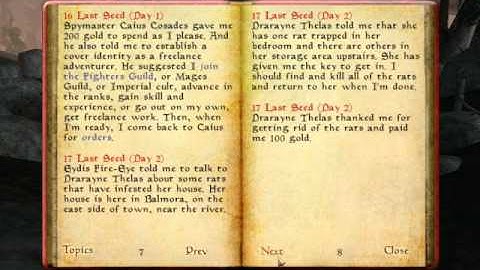 16 Last Seed (Day 1)
Spymaster Caius Cosades gave me
200 gold to spend as I please. And
he also told me to establish a
cover identity as a freelance
adventurer. He suggested I join
the Fighters Guild, or Mages
Guild, or Imperial cult, advance in
the ranks, gain skill and
experience, or go out on my own,
get freelance work. Then, when
I'm ready, I come back to Caius
for orders.
17 Last Seed (Day 2)
Eydis Fire-Eye told me to talk to
Drarayne Thelas about some rats
that have infested her house. Her
house is here in Balmora, on the
east side of town, near the river.
17 Last Seed (Day 2)
Drarayne Thelas told me that she
has one rat trapped in her
bedroom and there are others in
her storage area upstairs. She has
given me the key to get in. I
should find and kill all of the rats
and return to her when I'm done.
17 Last Seed (Day 2)
Drarayne Thelas thanked me for
getting rid of the rats and paid
me 100 gold.
Topics 7 Prev Next 8 Close